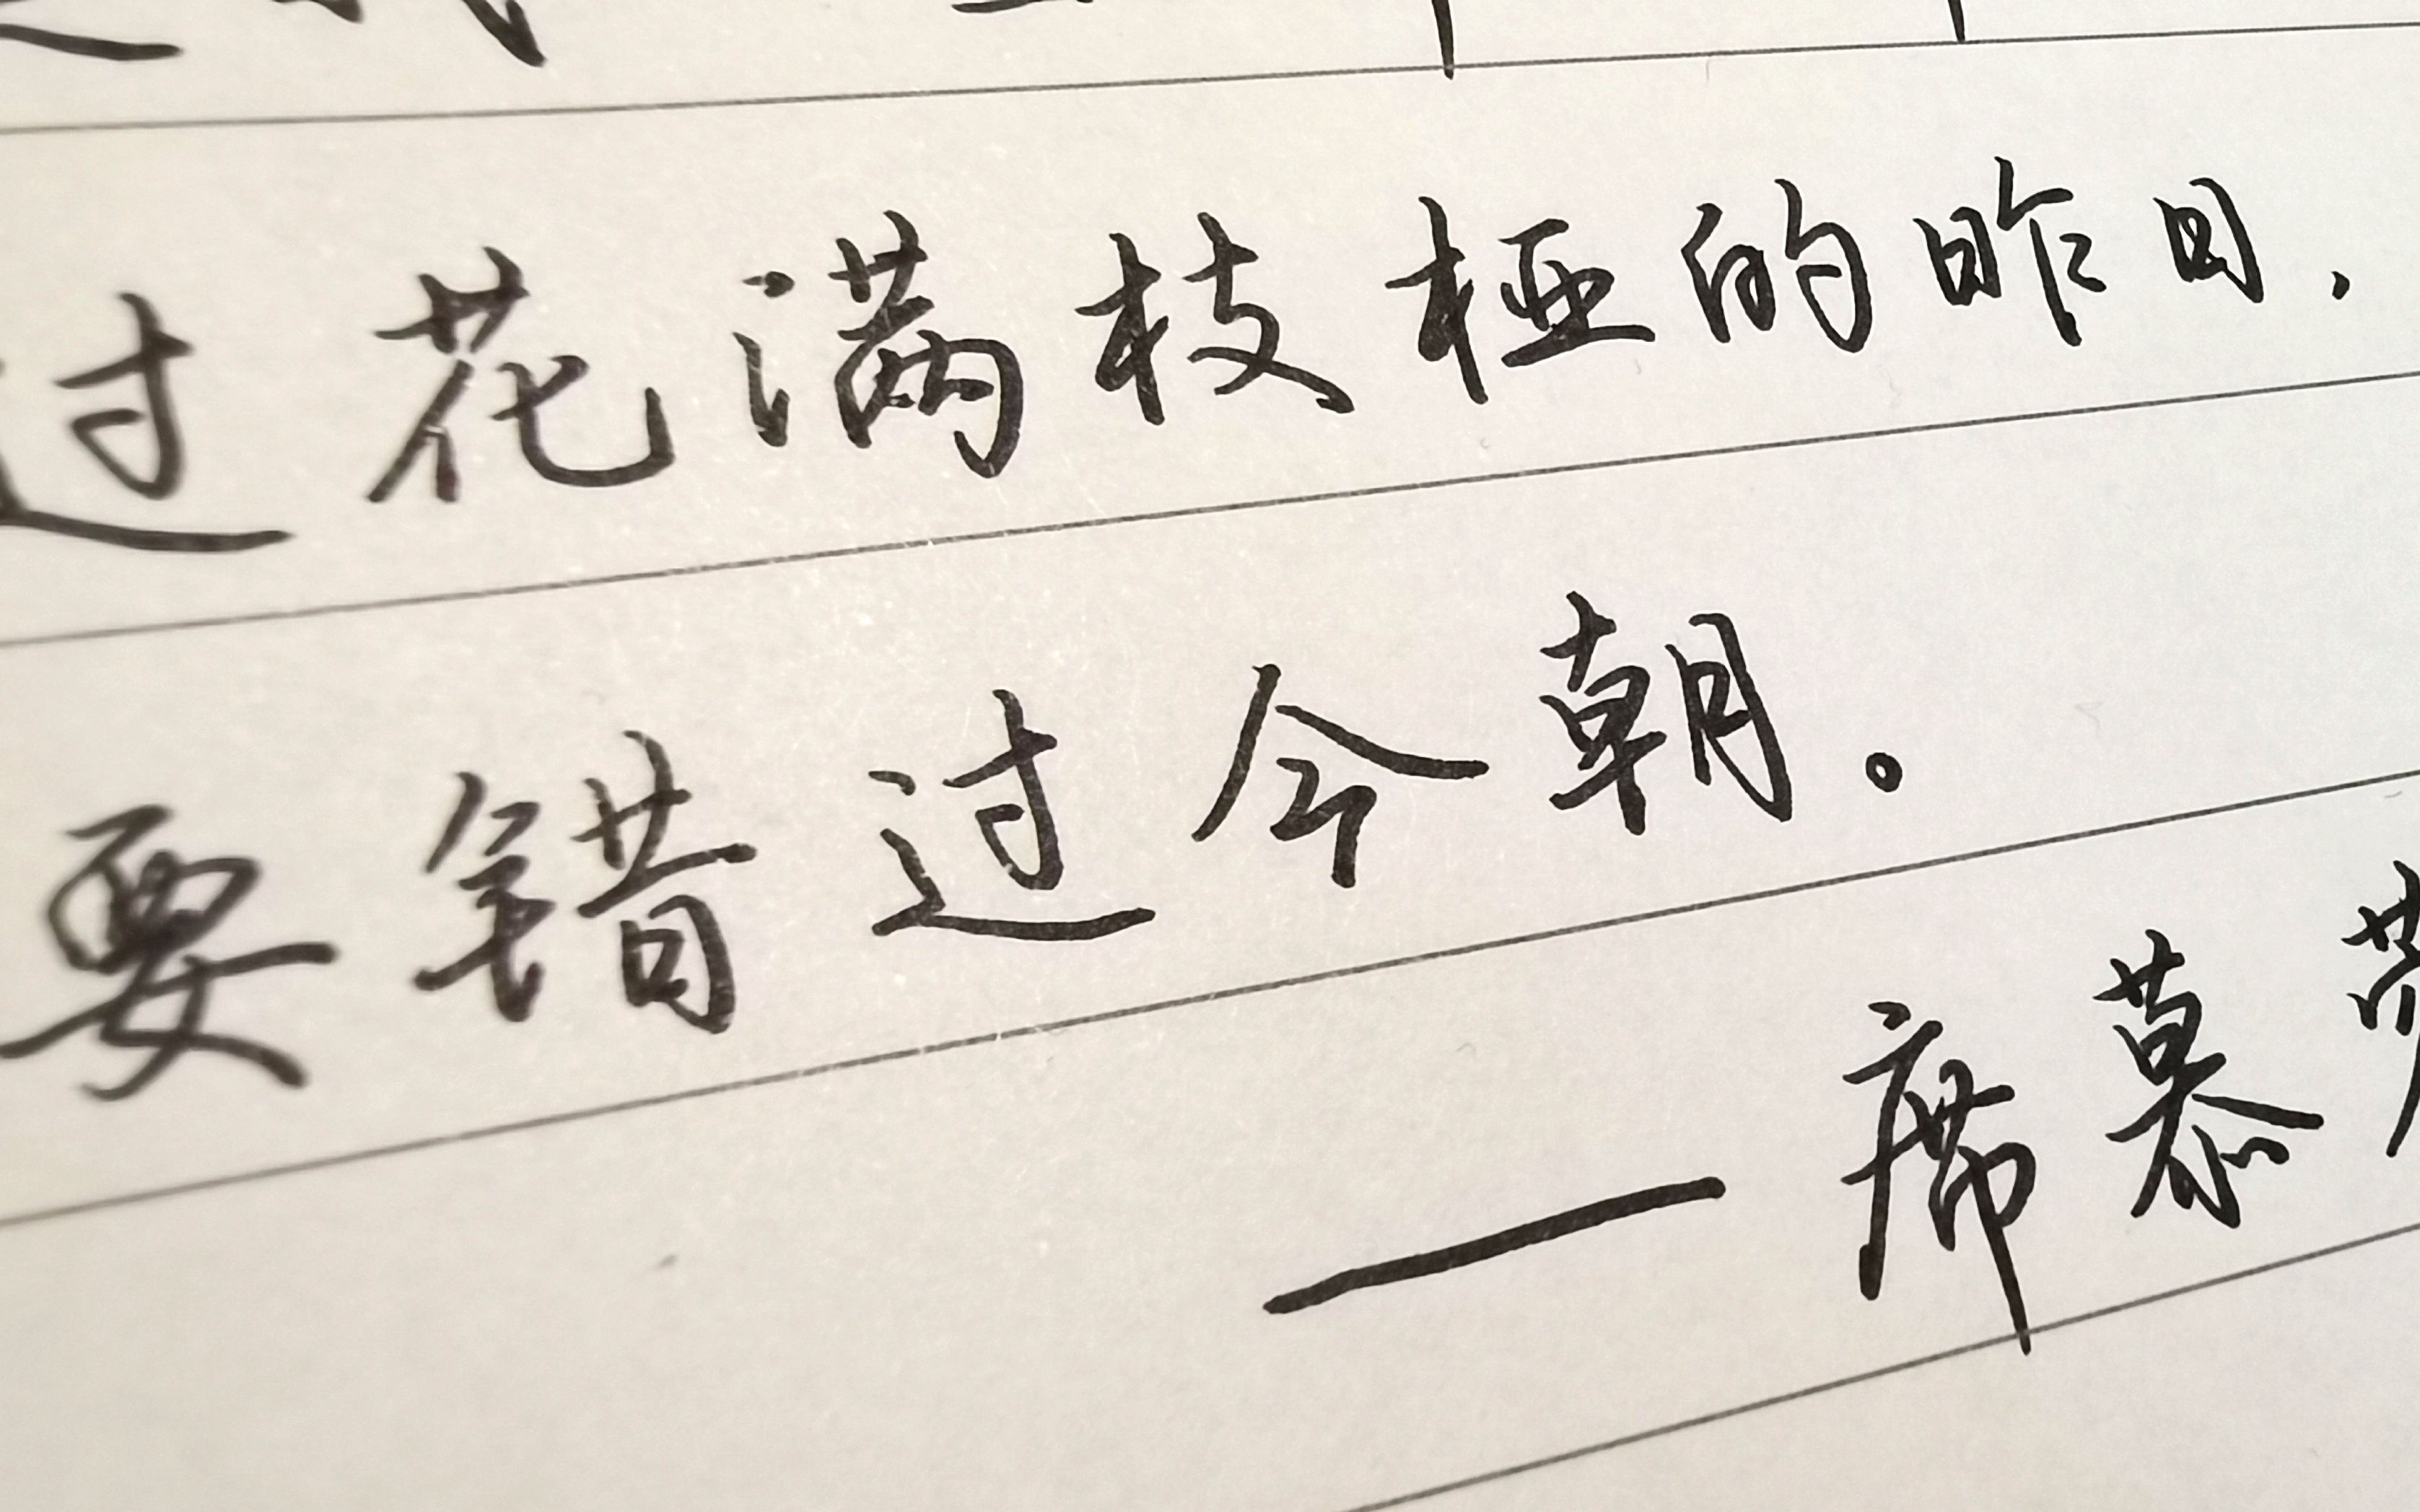 过花满枝桠的昨日，
要错过今朝。
——席慕